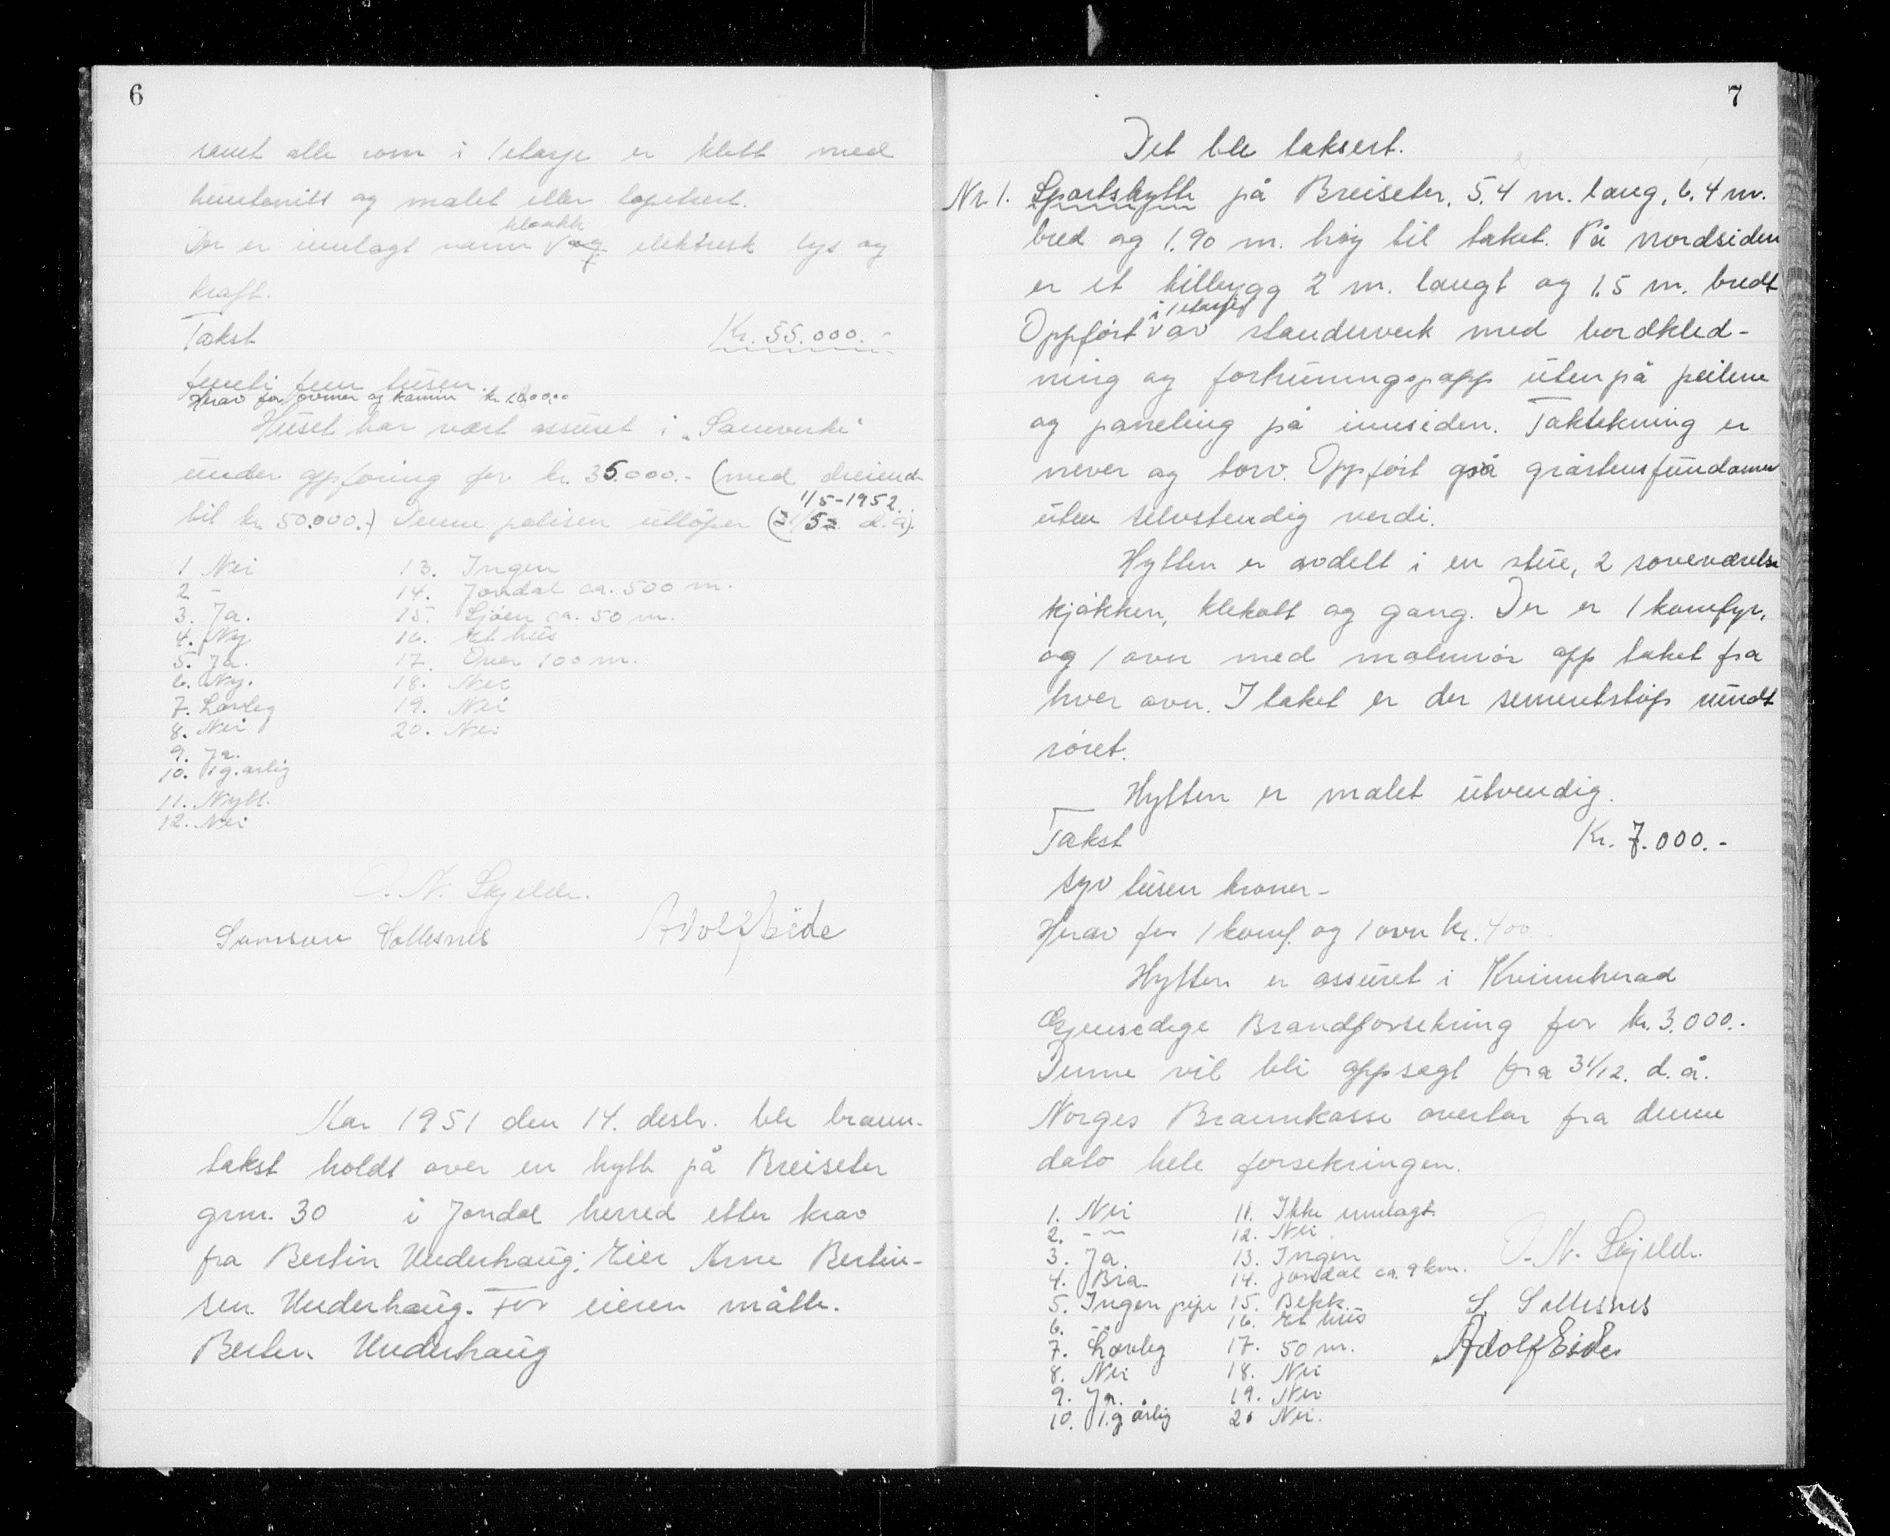 6
samt alle rom i 1 etasje er kledt med
huntonitt og malet eller tapetsert.
kloakk
Der er innlagt vann og elektrisk lys og
kraft.
Takst Kr. 55.000.-
femti fem tusen.
Herav for ovner og kamin kr 10.00.00
Huset har vært assuret i "Samverke"
under oppføring for kr. 35.000.- (med
til kr 50.000.-) Denne polisen utløper 1/5-1952. d.å).
1 Nei
2 -
3. Ja.
4. Ny
5. Ja.
6. Ny.
7. Lovleg
8. Nei
9. Ja.
10. 1 g. årlig
11. Nytt.
12. Nei
13. Ingen
14. Jondal ca. 500 m.
15. Sjøen ca. 50 m.
16. Et hus
17. Over 100 m.
18. Nei
19. Nei
20. Nei
N. Skjelde.
Samson Sollesnes Adolf Eide
År 1951 den 14. desbr. ble brann-
takst holdt over en hytte på Breiseter
gnr. 30 i Jondal herred etter krav
fra Bertin Underhaug; Eier Arne Bertin-
sen Underhaug. For eieren møtte.
Bertin Underhaug
7
Det ble taksert.
Nr 1. Sportshytte på Breiseter, 5,4 m. lang, 6,4 m.
bred og 1.90 m. høy til taket. På nordsiden
er et tilbygg 2 m. langt og 1,5 m. bredt
i 1 etasje
Oppført av standerverk med bordkled-
ning og forhuningspapp utenpå peilene
og paneling på innsiden. Taktekning er
never og torv. Oppført på gråstensfundament
uten selvstendig verdi.
Hytten er avdelt i en stue, 2 soveværelse
kjøkken, klekott og gang. Der er 1 komfyr,
og 1 ovn med malmrør opp taket fra
hver ovn. I taket er der sementstøp rundt
røret.
Hytten er malet utvendig.
Takst Kr. 7.000.-
syv tusen kroner -
Herav for 1 komf. og 1 ovn kr. 400
Hytten er assuret i Kvinnherad
Gjensidige Brandforsekring for kr. 3.000.-
Denne vil bli oppsagt fra 31/12. d.å.
Norges Brannkasse overtar fra denne
dato hele forsekringen.
1. Nei
2. - -
3. Ja.
4. Bra
5. Ingen pipe
6. - -
7. Lovleg
8. Nei
9. Ja.
10. 1.g årlig
11. Ikke innlagt.
12. Nei.
13. Ingen
14. Jondal ca. 9 km.
15. Bekk.
16. Et hus
17. 50 m.
18. Nei
19. Nei
20 Nei.
O. N. Skjelde.
S. Sollesnes
Adolf Eide